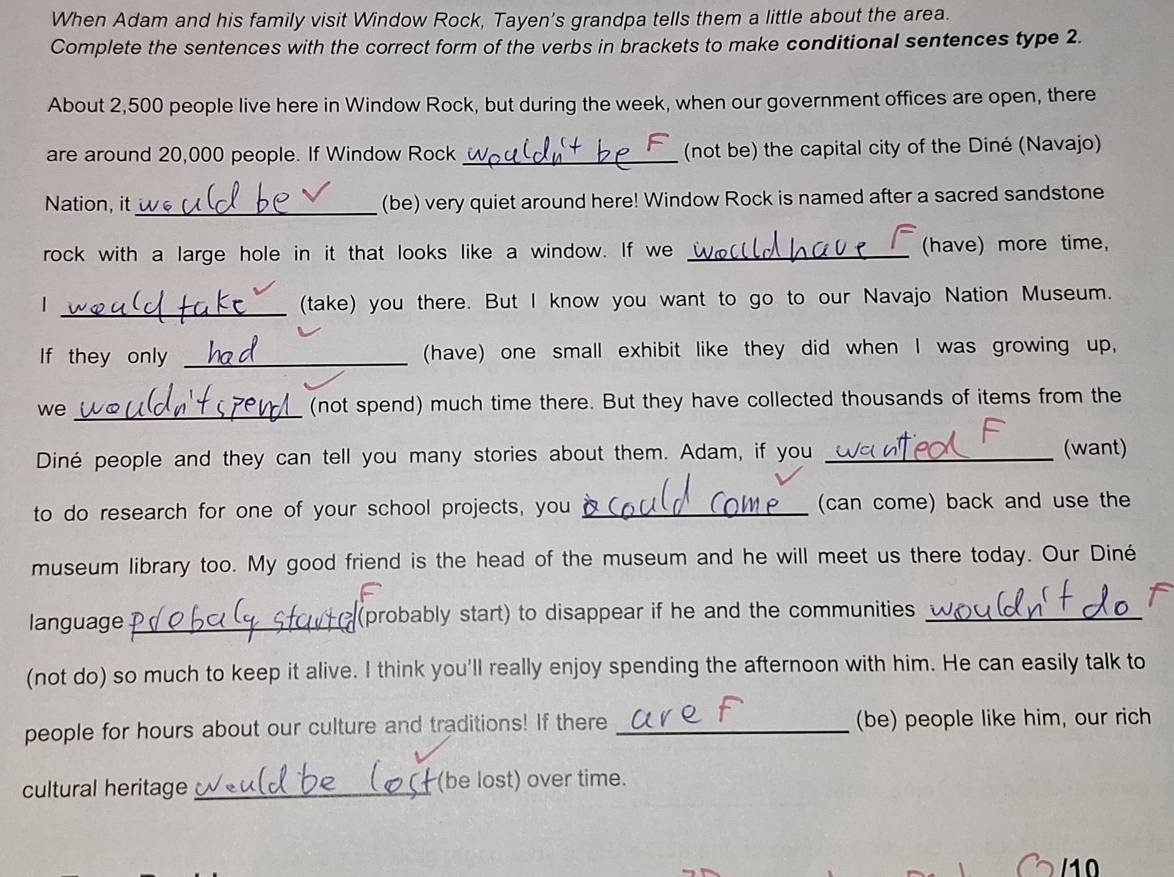 When Adam and his family visit Window Rock, Tayen's grandpa tells them a little about the area.
Complete the sentences with the correct form of the verbs in brackets to make conditional sentences type 2.
About 2,500 people live here in Window Rock, but during the week, when our government offices are open, there
are around 20,000 people. If Window Rock wouldn't be F (not be) the capital city of the Diné (Navajo)
Nation, it would be ✓ (be) very quiet around here! Window Rock is named after a sacred sandstone
rock with a large hole in it that looks like a window. If we would have F (have) more time,
I would take ✓ (take) you there. But I know you want to go to our Navajo Nation Museum.
If they only had ✓ (have) one small exhibit like they did when I was growing up,
we wouldn't spend ✓ (not spend) much time there. But they have collected thousands of items from the
Diné people and they can tell you many stories about them. Adam, if you wanted F (want)
to do research for one of your school projects, you could come ✓ (can come) back and use the
museum library too. My good friend is the head of the museum and he will meet us there today. Our Diné
language probaly started F (probably start) to disappear if he and the communities wouldn't do F
(not do) so much to keep it alive. I think you'll really enjoy spending the afternoon with him. He can easily talk to
people for hours about our culture and traditions! If there are F (be) people like him, our rich
cultural heritage would be lost ✓ (be lost) over time.
/10